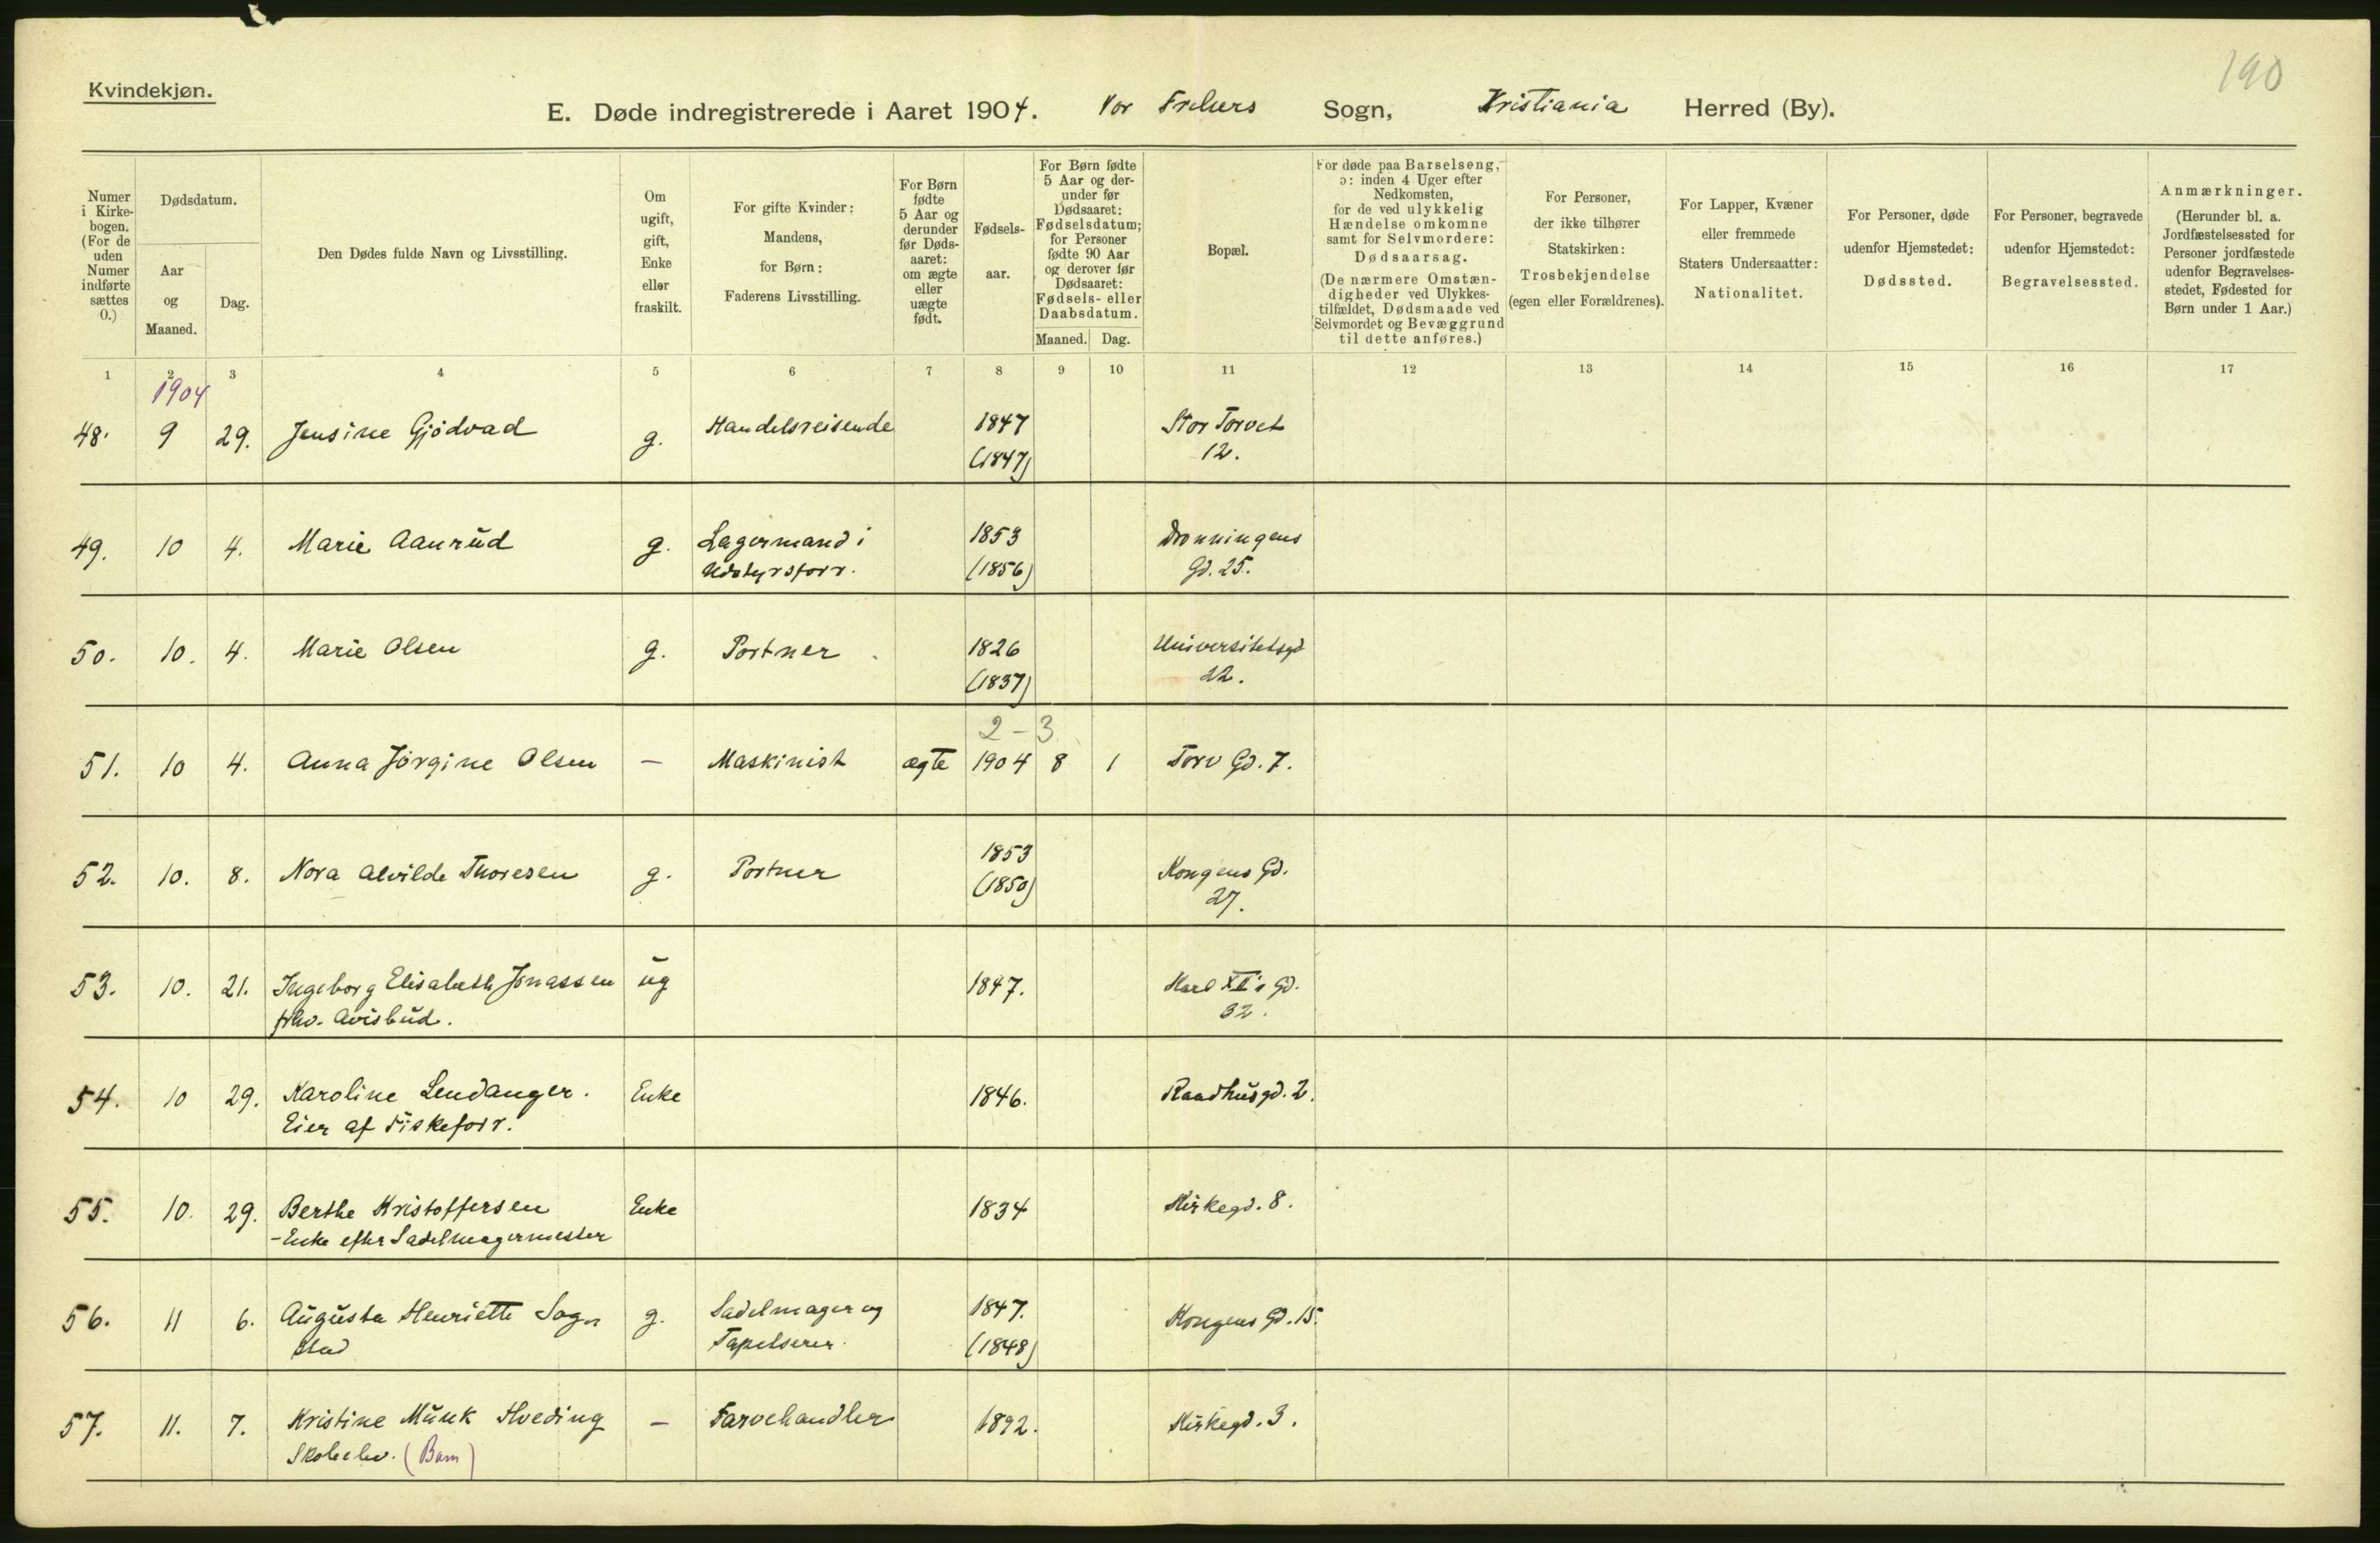 190
Kvindekjøn.
E. Døde indregistrerede i Aaret 1904. Vor Frelsers Sogn, Kristiania Herred (By).
Numer i Kirkebogen. (For de uden Numer indførte sættes 0.)
Dødsdatum.
Aar og Maaned.
Dag.
Den Dødes fulde Navn og Livsstilling.
Om ugift, gift, Enke eller fraskilt.
For gifte Kvinder: Mandens, for Børn: Faderens Livsstilling.
For Børn fødte 5 Aar og derunder før Dødsaaret: om ægte eller uægte født.
Fødselsaar.
For Børn fødte 5 Aar og derunder før Dødsaaret: Fødselsdatum; for Personer fødte 90 Aar og derover før Dødsaaret: Fødsels- eller Daabsdatum.
Maaned. Dag.
Bopæl.
For døde paa Barselseng, ɔ: inden 4 Uger efter Nedkomsten, for de ved ulykkelig Hændelse omkomne samt for Selvmordere: Dødsaarsag. (De nærmere Omstændigheder ved Ulykkestilfældet, Dødsmaade ved Selvmordet og Bevæggrund til dette anføres.)
For Personer, der ikke tilhører Statskirken: Trosbekjendelse (egen eller Forældrenes).
For Lapper, Kvæner eller fremmede Staters Undersaatter: Nationalitet.
For Personer, døde udenfor Hjemstedet: Dødssted.
For Personer, begravede udenfor Hjemstedet: Begravelsessted.
Anmærkninger. (Herunder bl. a. Jordfæstelsessted for Personer jordfæstede udenfor Begravelsesstedet, Fødested for Børn under 1 Aar.)
1 2 3 4 5 6 7 8 9 10 11 12 13 14 15 16 17
1904
48. 9 29. Jensine Gjödvad g. Handelsreisende 1847 Stor Torvet
(1847) 12.
49. 10 4. Marie Aanrud g. Lagermand i 1853 Dronningens
Udstyrsforr. (1856) Gd. 25.
50. 10. 4. Marie Olsen g. Portner 1826 Universitetsgd
(1837) 22.
2 - 3
51. 10 4. Anna Jörgine Olsen — Maskinist ægte 1904 8 1 Torv Gd. 7.
52. 10. 8. Nora Alvilde Thoresen g. Portner 1853 Kongens Gd.
(1850) 27.
53. 10. 21. Ingeborg Elisabeth Jonassen ug 1847. Karl XII's Gd.
frhv. Avisbud. 32.
54. 10 29. Karoline Lendanger. Enke 1846. Raadhusgd. 2.
Eier af Fiskeforr.
55. 10. 29. Berthe Kristoffersen Enke 1834 Kirkegd. 8.
- Enke efter Sadelmagermester
56. 11 6. Augusta Henriette Sogn g. Sadelmager og 1847. Kongens Gd. 15.
stad Tapetserer. (1848)
57. 11. 7. Kristine Munk Hveding — Farvehandler 1892. Kirkegd. 3.
Skoleelev. (Barn)